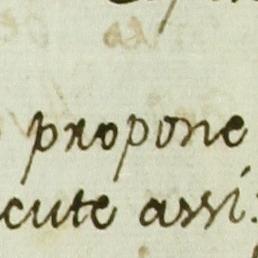 propone
cute assi: